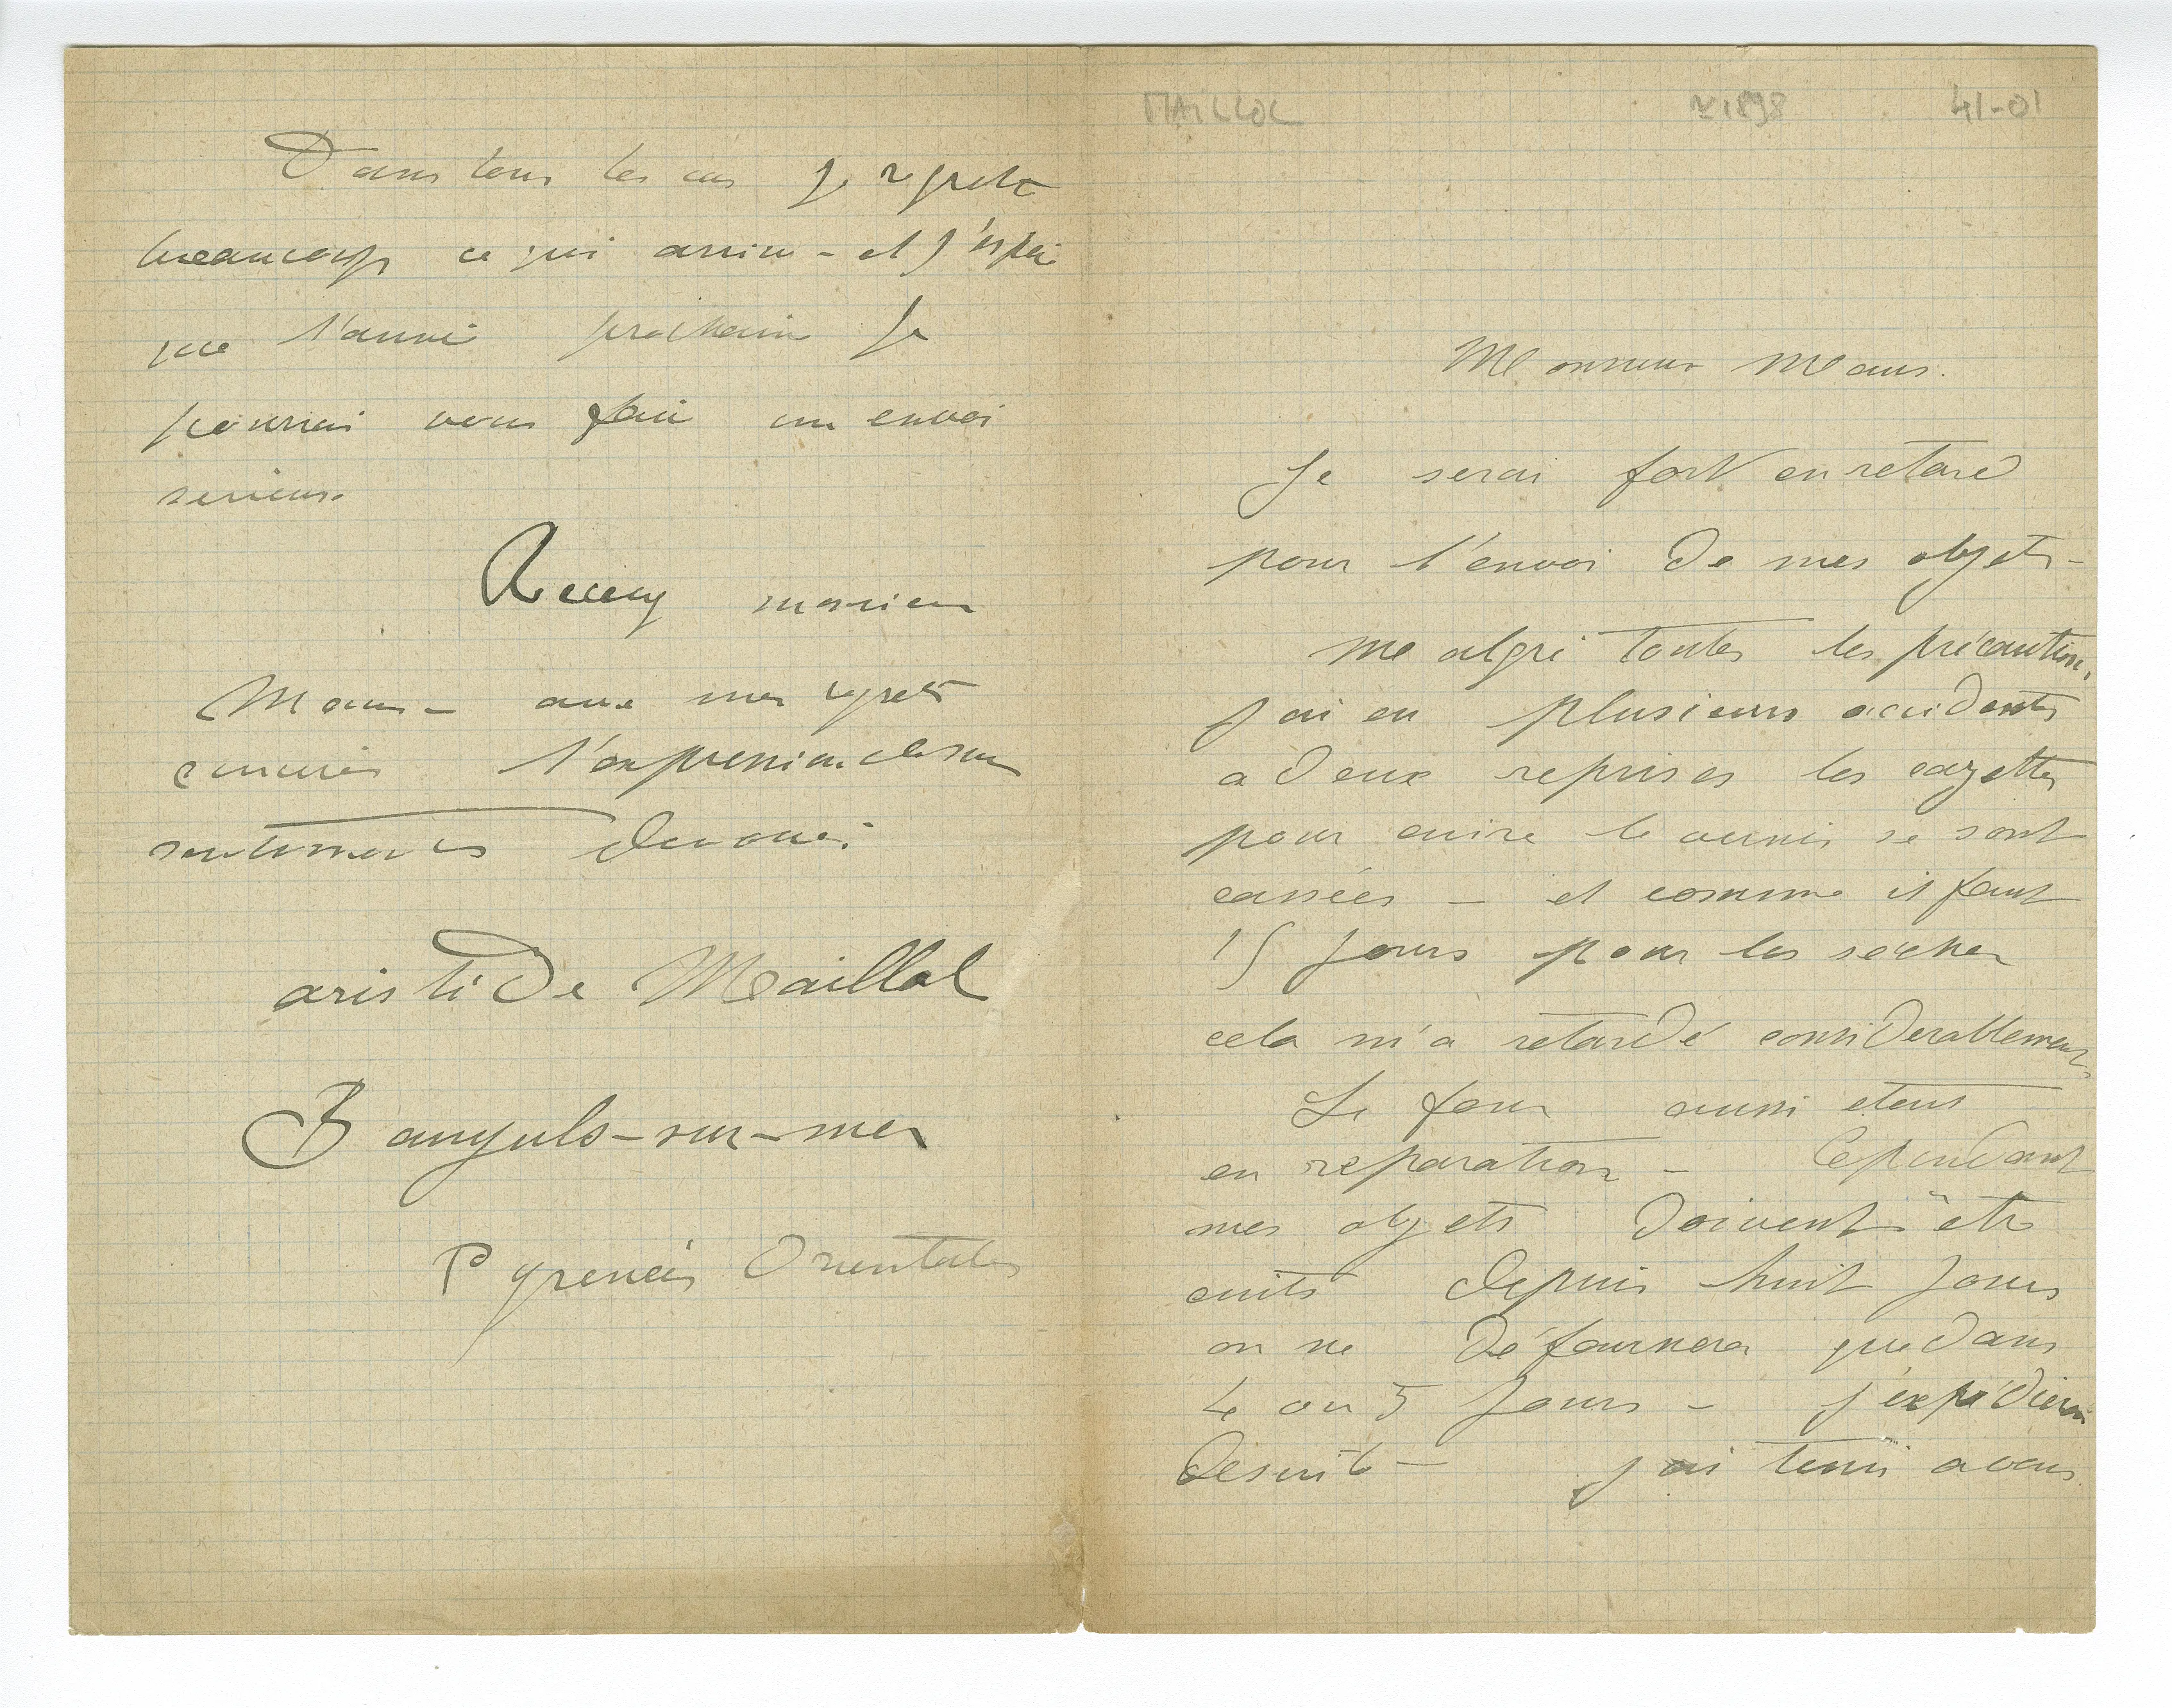 MAILLOL ~1898 41-01
Monsieur Maus.
Je serai fort en retard
pour l'envoi de mes objets -
Malgré toutes les précautions,
j'ai eu plusieurs accidents
a deux reprises les cazettes
pour cuire le vernis se sont
cassées - et comme il faut
15 jours pour les secher
cela m'a retardé considerablement
Le four aussi etant
en reparation - Cependant
mes objets doivent être
cuits depuis huit jours
on ne défournera que dans
4 ou 5 jours - j'expédierai
desuite - j'ai tenu a vous
Dans tous les cas je regrette
beaucoup ce qui arrive - et j'espère
que l'année prochaine je
pourrai vous faire un envoi
serieux
Recevez monsieur
Maus - avec mes regrets
l'expression de mes
sentiments devoués
aristide Maillol
Banyuls-sur-mer
Pyrenées Orientales